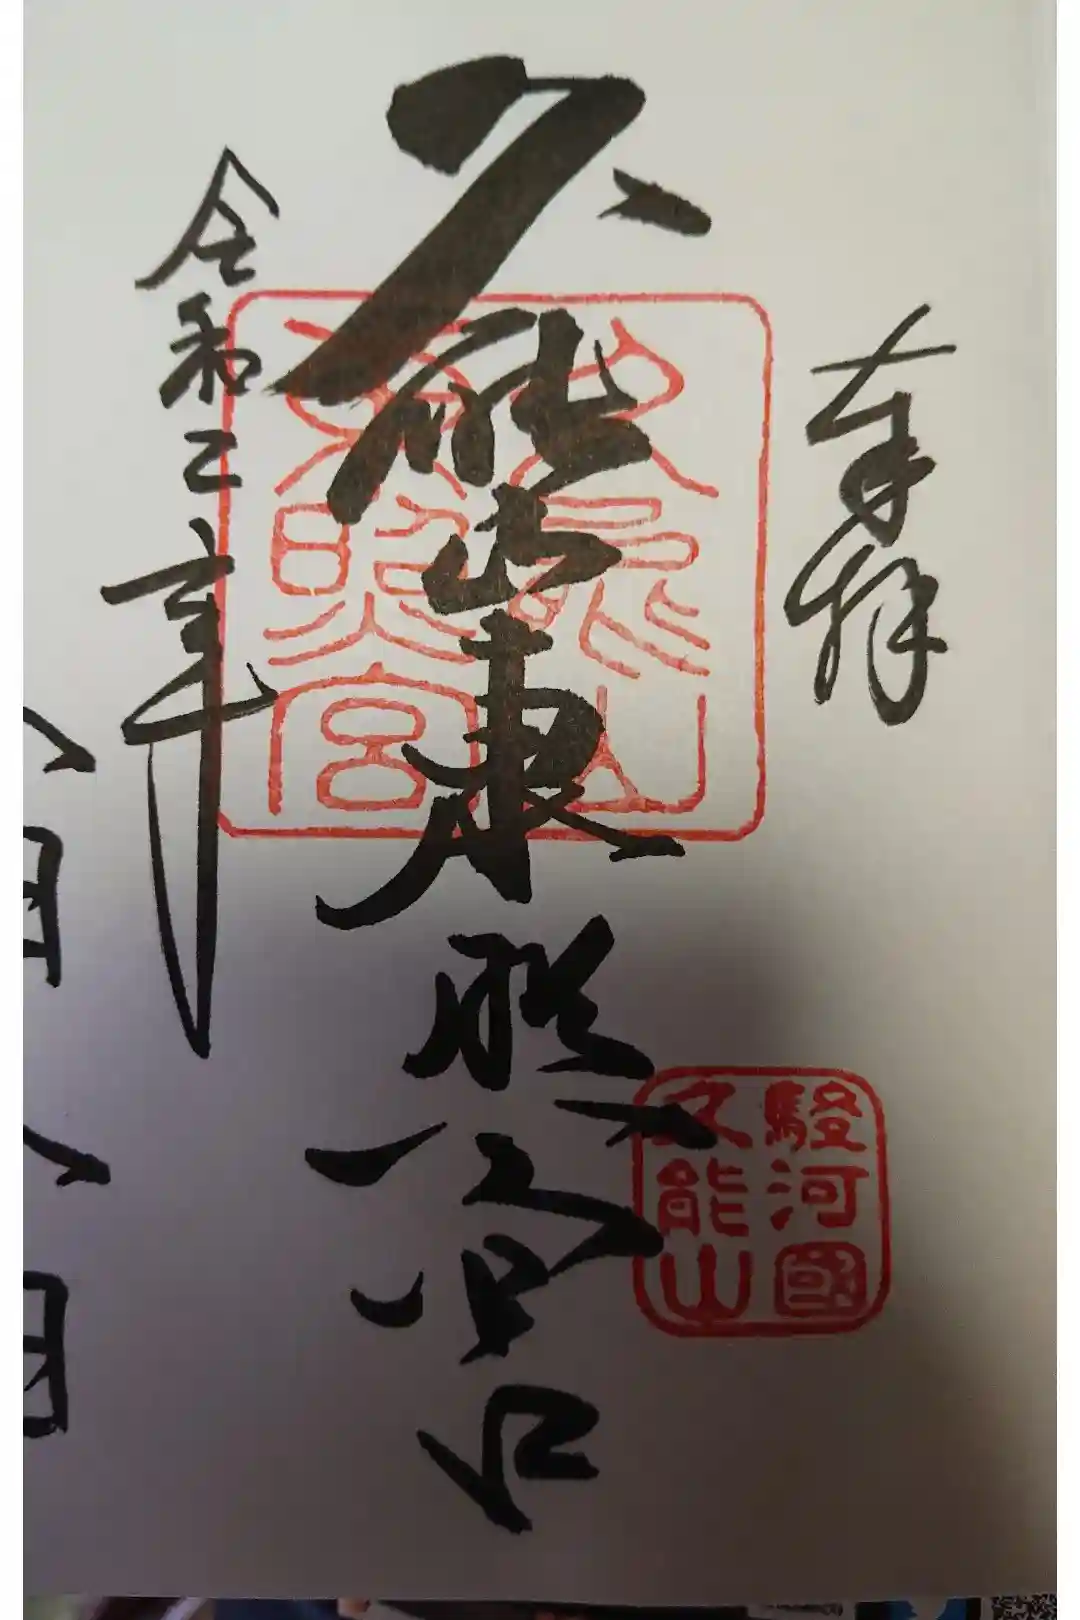 奉拝
久能山東照宮
久能山
東照宮
駿河國
久能山
令和二年